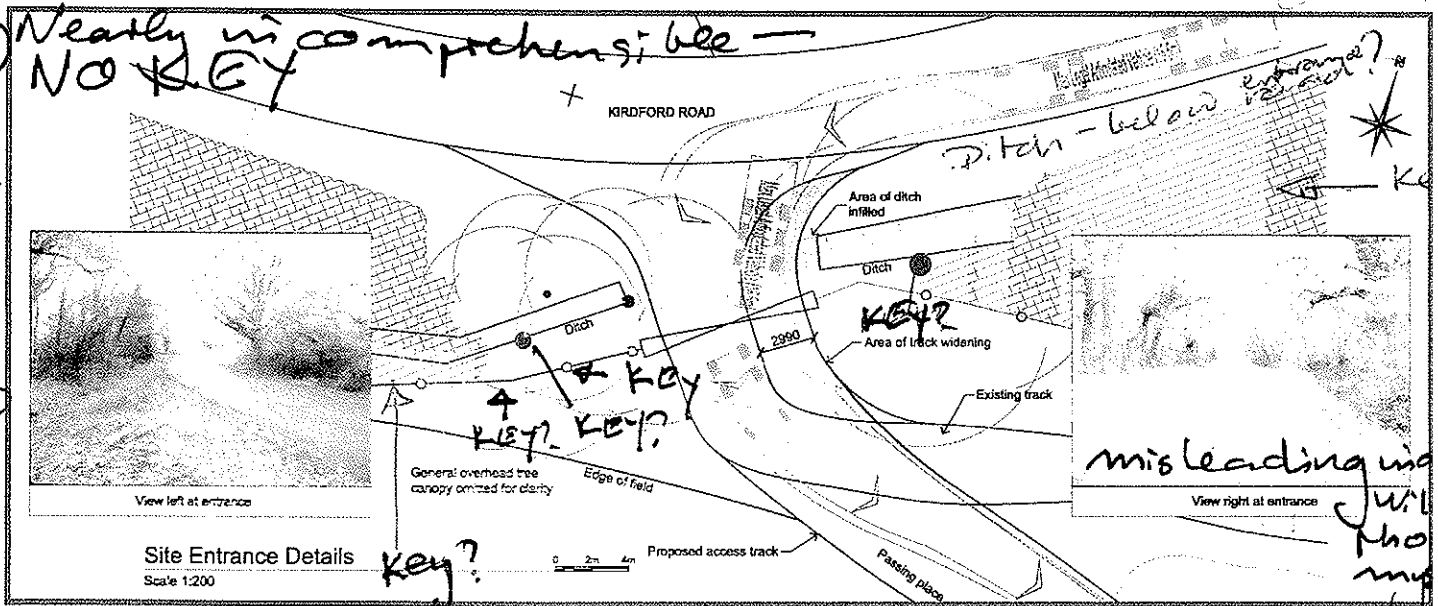 Nearly incomprehensible —
NO KEY
KIRDFORD ROAD
Ditch - below entrance?
N
Area of ditch
infilled
Ditch
KEY?
Area of track widening
2990
Existing track
Ditch
KEY
KEY?
KEY?
General overhead tree
canopy omitted for clarity
Edge of field
View left at entrance
misleading
View right at entrance
Site Entrance Details
Scale 1:200
Key?
0 2m 4m
Proposed access track
Passing place